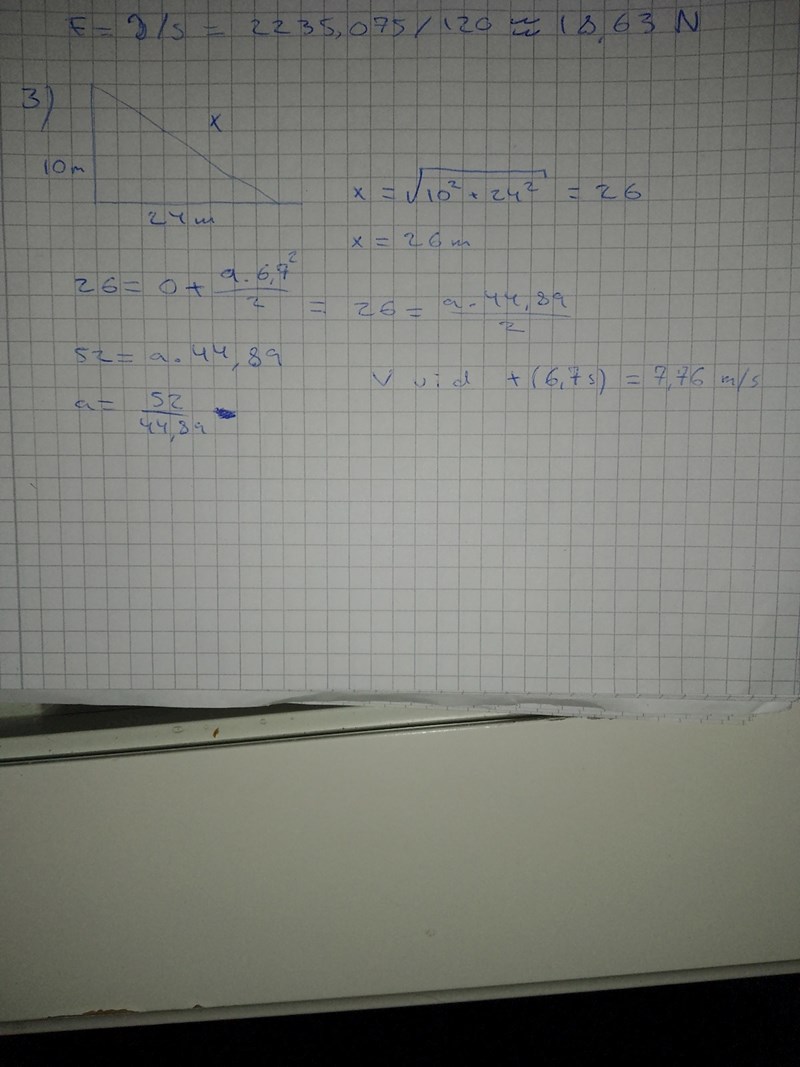 F = J/s = 2235,075/120 ≈ 18,63 N
3)
x
10m
24m
x = √10² + 24² = 26
x = 26 m
26 = 0 + a · 6,7² / 2 = 26 = a · 44,89 / 2
52 = a · 44,89
V vid t (6,7s) = 7,76 m/s
a = 52 / 44,89